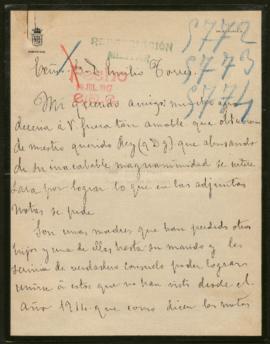 REPARACIÓN
MILITAR
5772
5773
5774
JUL. 1917
Exmo. S. D. Emilio Torres
Mi querido amigo: mucho agra-
deceria á V. fuera tan amable que obtuviera
de nuestro querido Rey (q D g) que abusando
de su inacabable magnanimidad se intere-
sara por lograr lo que en las adjuntas
notas se pide.
Son unas madres que han perdido otros
hijos y una de ellas hasta su marido y les
serviria de verdadero consuelo poder lograr
reunirse á estos que no han visto desde el
año 1914 que como dicen las notas